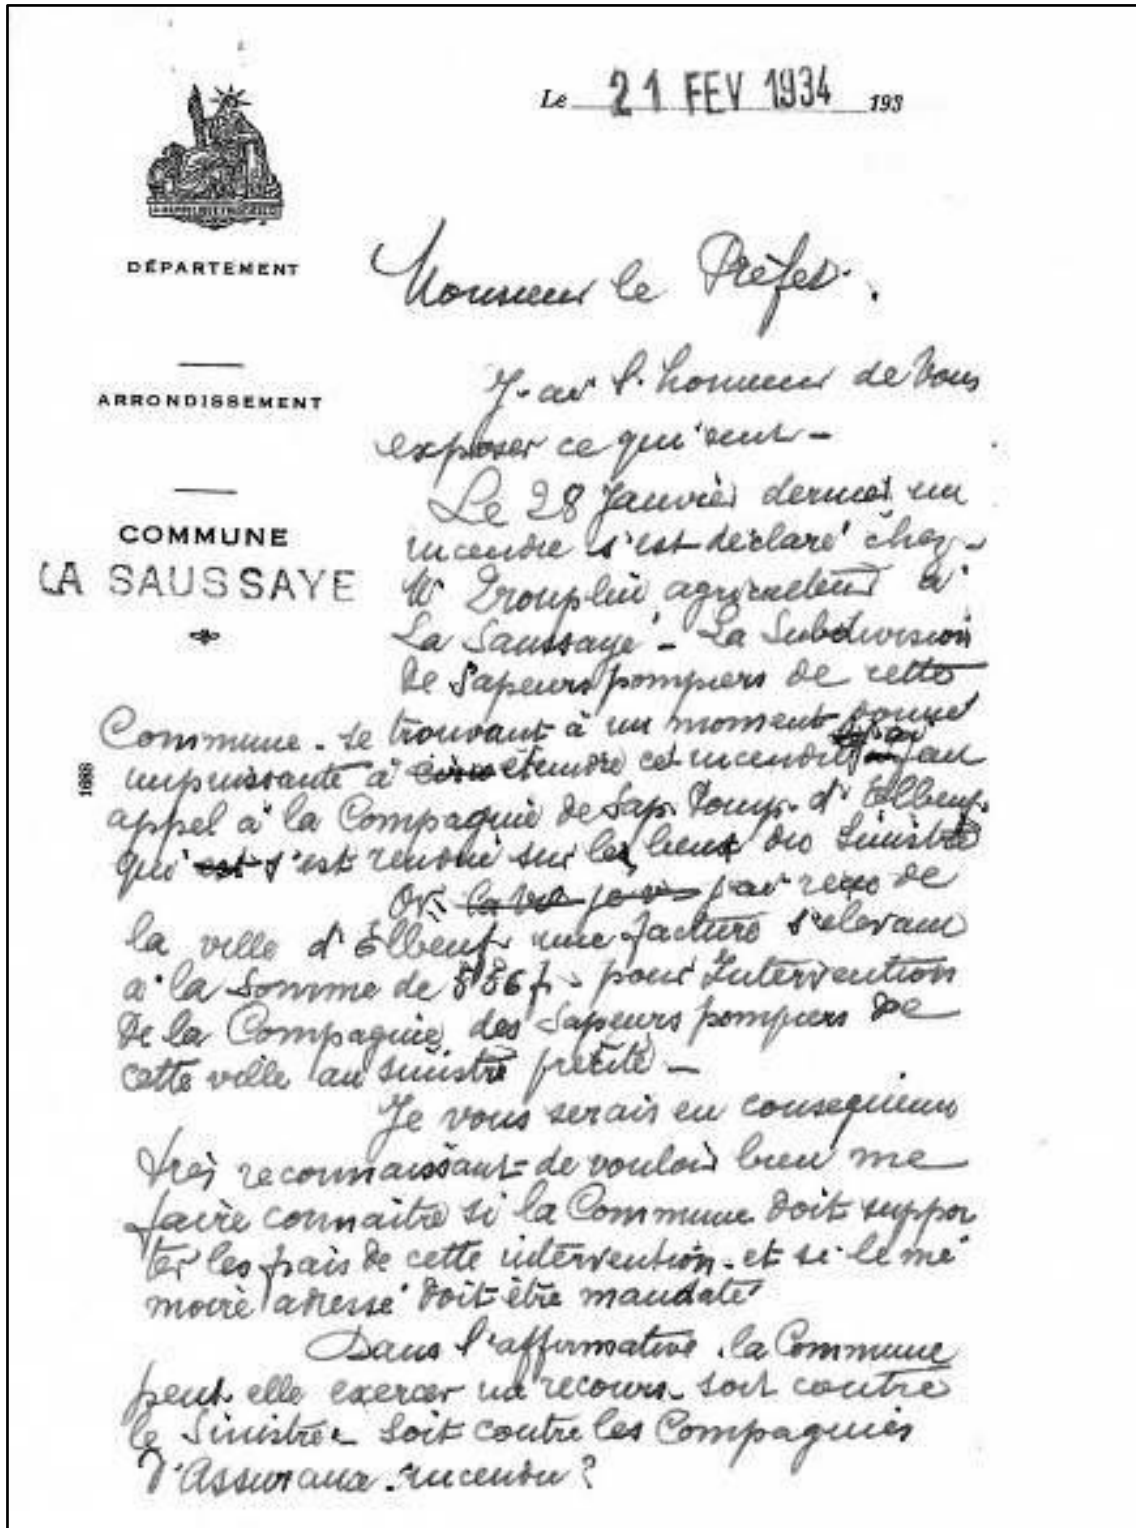 Le 21 FEV 1934 193
DÉPARTEMENT
ARRONDISSEMENT
COMMUNE
LA SAUSSAYE
1688
Monsieur le Préfet.
J'ai l'honneur de Vous
exposer ce qui suit -
Le 28 Janvier dernier un
incendie s'est déclaré chez
Mr agriculteur à
La Saussaye - La Subdivision
de Sapeurs pompiers de cette
Commune se trouvant à un moment donné
impuissante à éteindre cet incendie
appel à la Compagnie de Sap. Pomp. d'Elbeuf
qui est s'est rendue sur les lieux du Sinistre
Or j'ai reçu de
la ville d'Elbeuf une facture s'elevant
à la Somme de pour Intervention
de la Compagnie des Sapeurs pompiers de
cette ville au sinistre précité -
Je vous serais en consequence
très reconnaissant de vouloir bien me
faire connaitre si la Commune doit suppor
ter les frais de cette intervention. et si le mé
moire adressé doit être mandaté
Dans l'affirmative. la Commune
peut elle exercer un recours soit contre
le Sinistré soit contre les Compagnies
d'Assurance incendie ?